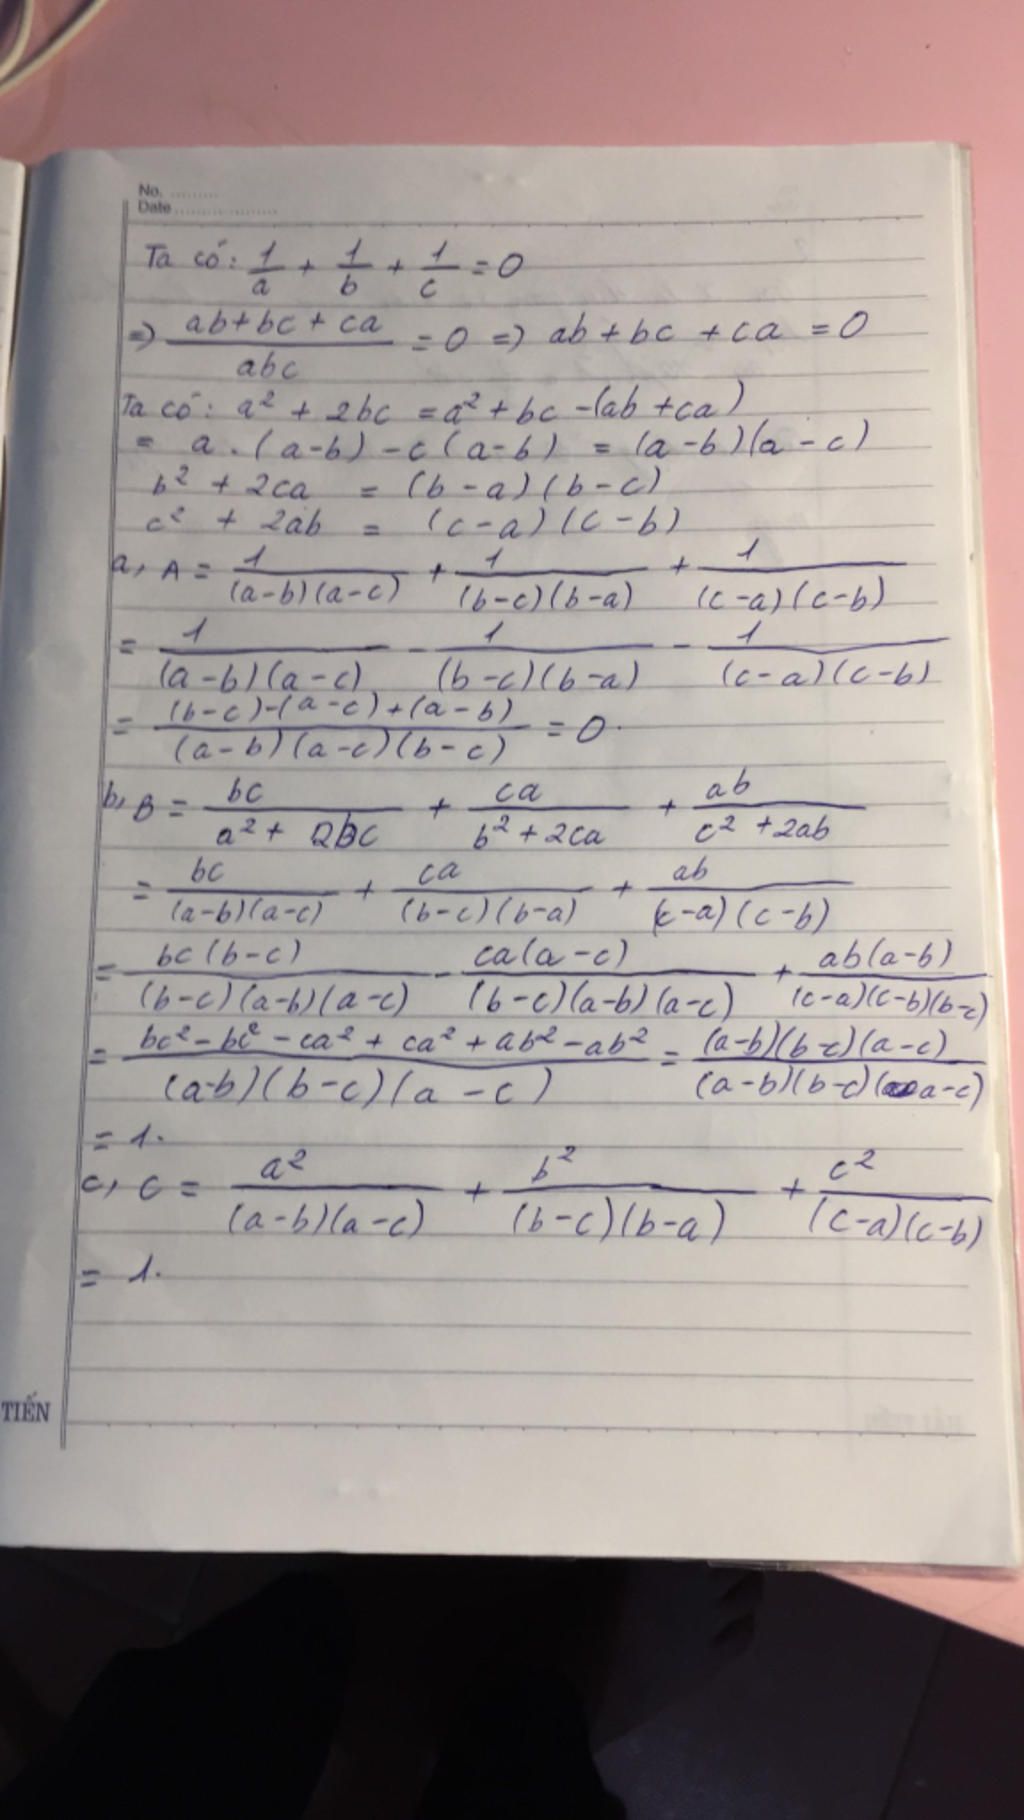 No. .........
Date ...................
Ta có: 1/a + 1/b + 1/c = 0
=> (ab+bc+ca)/abc = 0 => ab + bc + ca = 0
Ta có: a² + 2bc = a² + bc -(ab+ca)
= a.(a-b) -c(a-b) = (a-b)(a-c)
b² + 2ca = (b-a)(b-c)
c² + 2ab = (c-a)(c-b)
a, A = 1/(a-b)(a-c) + 1/(b-c)(b-a) + 1/(c-a)(c-b)
= 1/(a-b)(a-c) - 1/(b-c)(b-a) - 1/(c-a)(c-b)
= ((b-c)-(a-c)+(a-b))/(a-b)(a-c)(b-c) = 0.
b, B = bc/(a² + 2bc) + ca/(b² + 2ca) + ab/(c² + 2ab)
= bc/(a-b)(a-c) + ca/(b-c)(b-a) + ab/(c-a)(c-b)
= bc(b-c)/(b-c)(a-b)(a-c) - ca(a-c)/(b-c)(a-b)(a-c) + ab(a-b)/(c-a)(c-b)(b-c)
= (bc² - bc² - ca² + ca² + ab² - ab²)/(a-b)(b-c)(a-c) = (a-b)(b-c)(a-c)/(a-b)(b-c)(a-c)
= 1.
c, C = a²/(a-b)(a-c) + b²/(b-c)(b-a) + c²/(c-a)(c-b)
= 1.
TIẾN